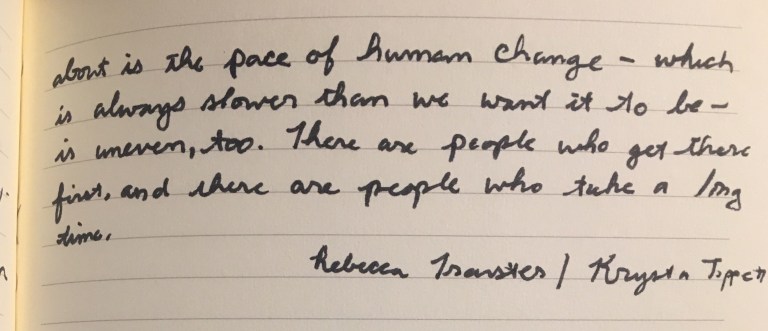 about is the pace of human change – which
is always slower than we want it to be –
is uneven, too. There are people who get there
first, and there are people who take a long
time.
Rebecca Traister / Krysta Tippett